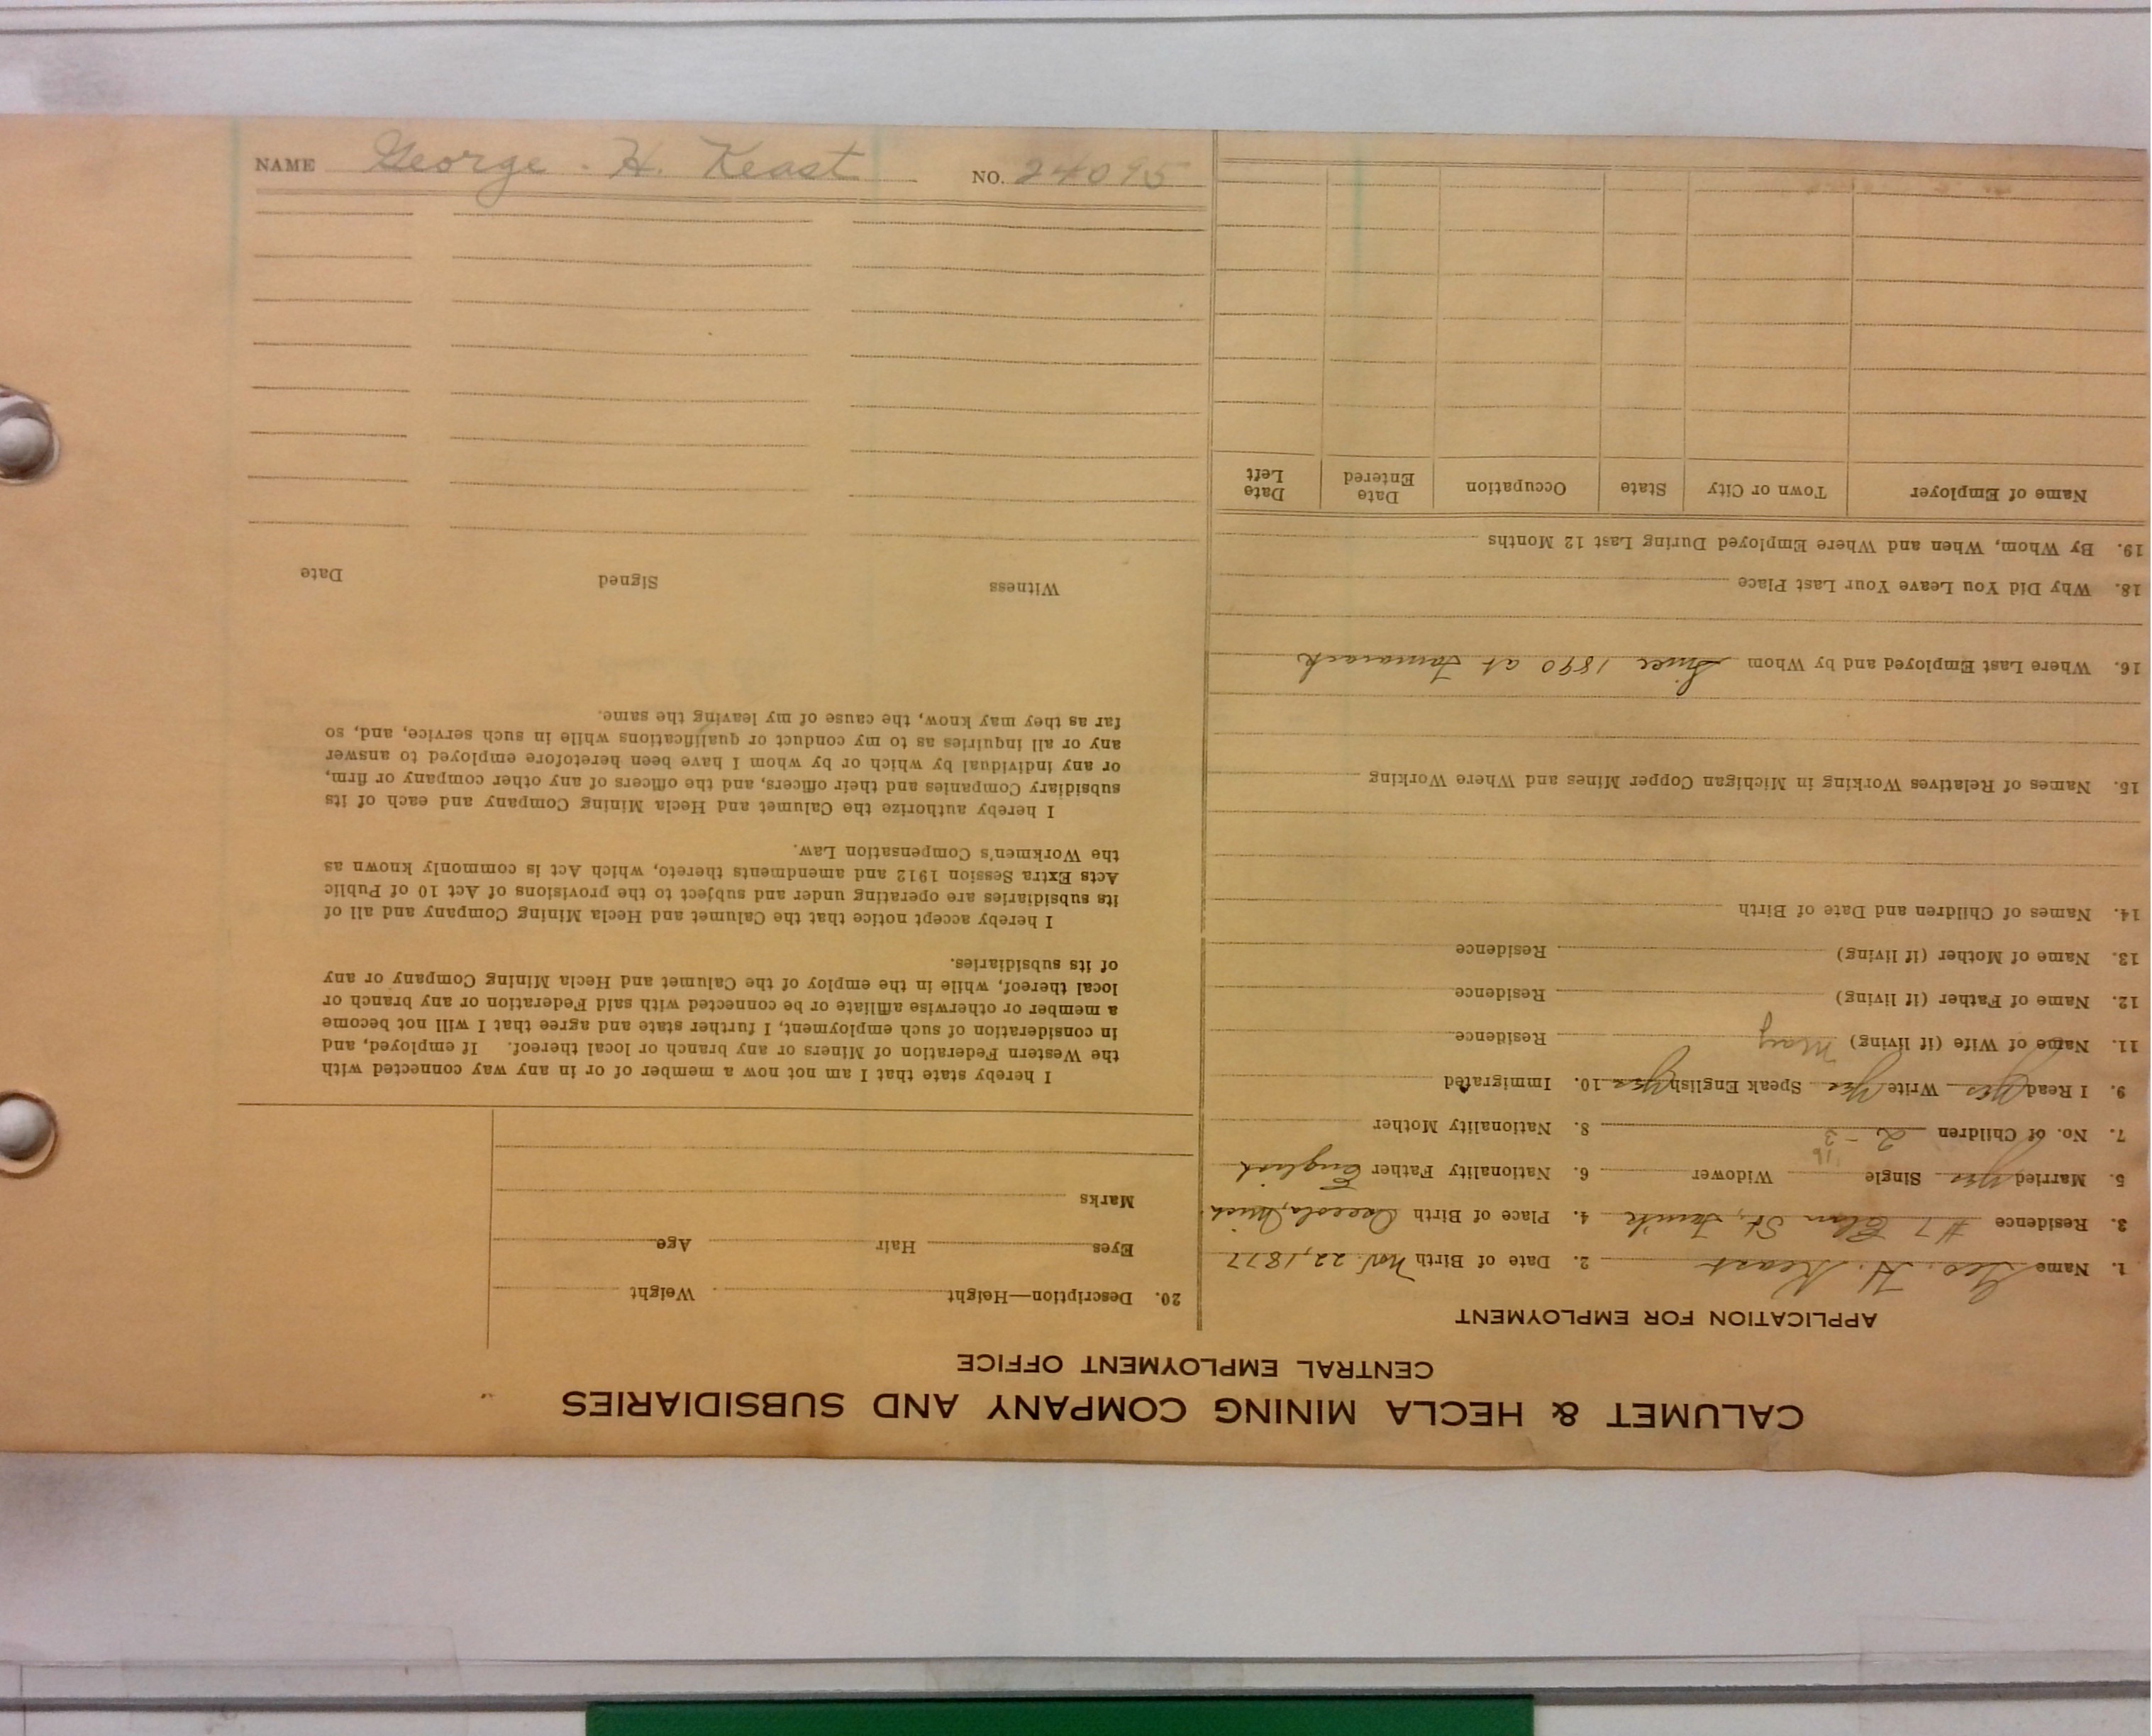 CALUMET & HECLA MINING COMPANY AND SUBSIDIARIES
CENTRAL EMPLOYMENT OFFICE
APPLICATION FOR EMPLOYMENT
1. Name Geo. H. Keast 2. Date of Birth Nov. 22, 1877
3. Residence #7 Elm St., 4. Place of Birth Osceola, Mich.
5. Married Yes Single Widower 6. Nationality Father English
7. No. of Children 2 - 3 8. Nationality Mother
9. I Read Yes Write Yes Speak English Yes 10. Immigrated
11. Name of Wife (if living) Mary Residence
12. Name of Father (if living) Residence
13. Name of Mother (if living) Residence
14. Names of Children and Date of Birth
15. Names of Relatives Working in Michigan Copper Mines and Where Working
16. Where Last Employed and by Whom Since 1890 at Tamarack
18. Why Did You Leave Your Last Place
19. By Whom, When and Where Employed During Last 12 Months
Name of Employer Town or City State Occupation Date Entered Date Left
20. Description—Height Weight
Eyes Hair Age
Marks
I hereby state that I am not now a member of or in any way connected with
the Western Federation of Miners or any branch or local thereof. If employed, and
in consideration of such employment, I further state and agree that I will not become
a member or otherwise affiliate or be connected with said Federation or any branch or
local thereof, while in the employ of the Calumet and Hecla Mining Company or any
of its subsidiaries.
I hereby accept notice that the Calumet and Hecla Mining Company and all of
its subsidiaries are operating under and subject to the provisions of Act 10 of Public
Acts Extra Session 1912 and amendments thereto, which Act is commonly known as
the Workmen's Compensation Law.
I hereby authorize the Calumet and Hecla Mining Company and each of its
subsidiary Companies and their officers, and the officers of any other company or firm,
or any individual by which or by whom I have been heretofore employed to answer
any or all inquiries as to my conduct or qualifications while in such service, and, so
far as they may know, the cause of my leaving the same.
Witness Signed Date
NAME George H. Keast NO. 24095